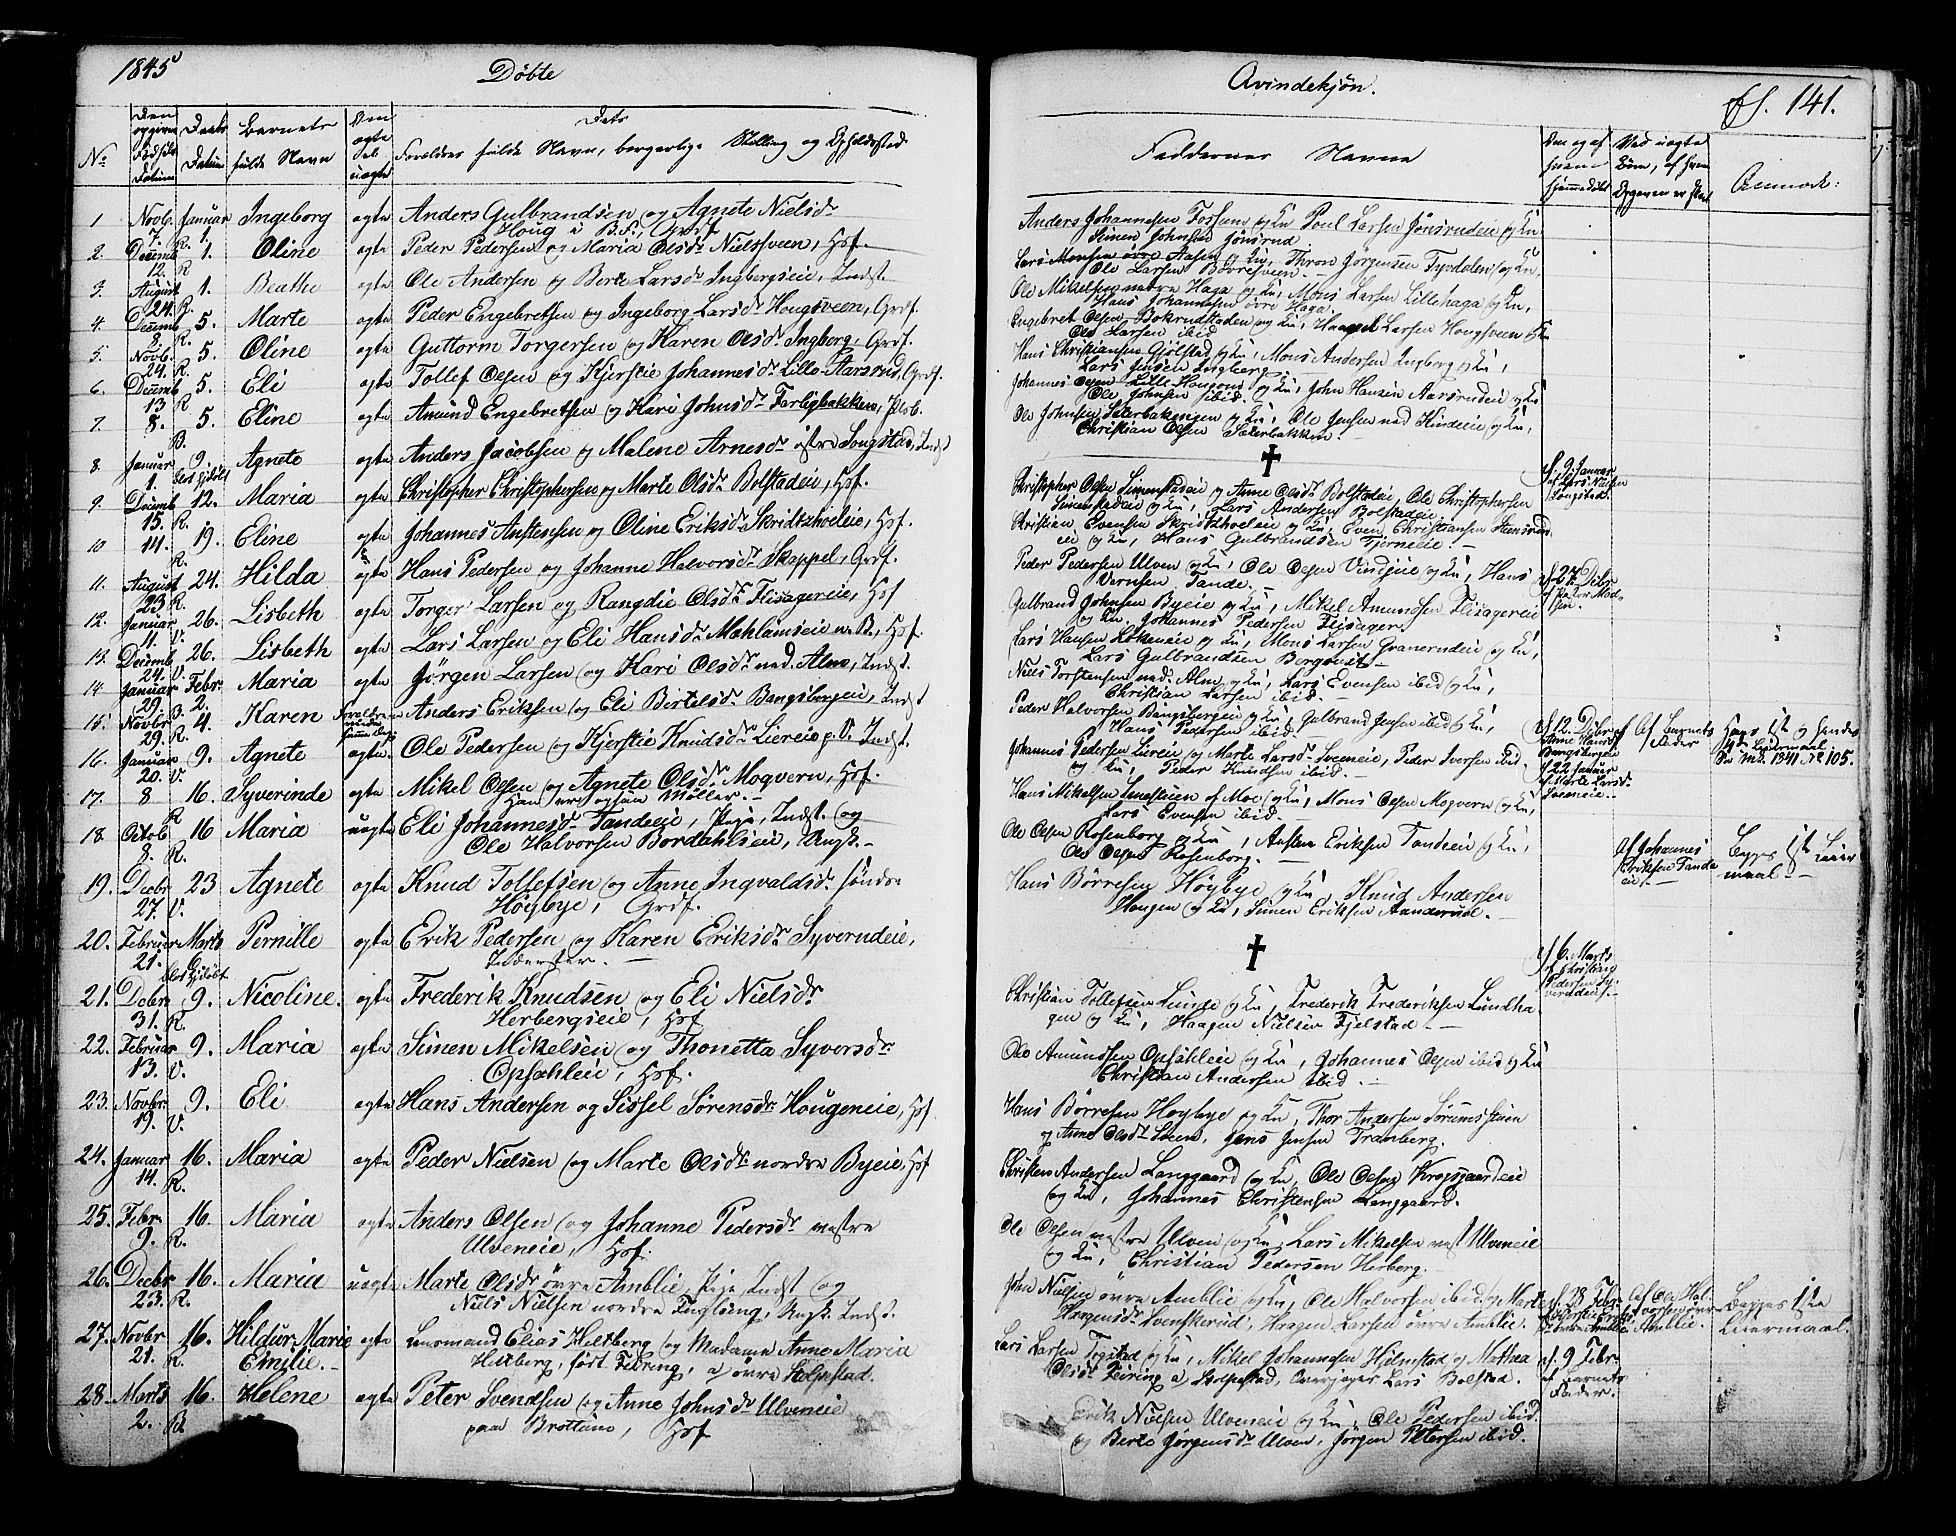 1845
Döbte
Qvindekjön.
fol. 141.
No
Den opgivne Födsels Datum
Daabs Datum
Barnets fulde Navn
Om ægte eller uægte
Dets
Forældres fulde Navn, borgerlige Stilling og Opholdssted
Faddernes Navne
Om og af hvem hjemmedöbt
Ved uægte Börn, af hvem Opgaven er skeet
Anmærk:
1 Novb. 7. R. Januar 1. Ingeborg ægte Anders Gulbrandsen og Agnete Nielsdr
Houg i B.F., Grdf.
Anders Johannesen Fossum og Ku Poul Larsen Jönsrudeie og Ku
Simen Johnsen Jönsrud
2. Decemb 12. R 1. Oline ægte Peder Pedersen og Maria Olsdr Nielssveen, Hsf.
Lars Monsen övre Aasen og Ku, Thron Jörgensen Tyvdalen og Ku,
Ole Larsen Börresveen.
3. August 24. R. 1 Beathe ægte Ole Andersen og Berte Larsdr Ingbergseie, Indst.
Ole Mikelsen nedre Haga og Ku, Mons Larsen Lillehaga og Ku,
Hans Johannesen övre Haga.
4. Decemb 8. R. 5. Marte ægte Peder Engebretsen og Ingeborg Larsdr Hougsveen, Grdf.
Engebret Olsen Bokrudstaden og Ku, Haagen Larsen Hougsveen og Ku
Ole Larsen ibid.
5. Novb. 24. R. 5. Oline ægte Guttorm Torgersen og Karen Olsdr Ingberg, Grdf.
Hans Christiansen Gjölstad og Ku, Mons Andersen Ingberg og Ku,
Lars Jensen Ingberg.
6. Decemb 13 R 5. Eli ægte Tollef Olsen og Kjerstie Johannesdr Lille-Aarsrud, Grdf.
Johannes Olsen Lille Hougom og Ku, John Hansen Aarsrudeie og Ku
Ole Johnsen ibid.
7. 8. B. 5. Eline ægte Amund Engebretsen og Kari Johnsdr Farligbakken, Plsb.
Ole Johnsen Sæterbakengen og Ku, Ole Jensen ned Kindeie og Ku,
Christian Olsen Sæterbakken.
8. Januar 1. 9 Agnete ægte Anders Jacobsen og Malene Arnesdr östre Songstad, Indst
†
d. 9. Januar
af Lars Nilsen
Songstad.
9. Decemb 15. R. 12. Maria ægte Christopher Christophersen og Marte Olsdr Bolstadeie, Hsf.
Christopher Olsen Simenstadeie og Anne Olsdr Bolstadeie, Ole Christophersen
Simenstadeie og Ku, Lars Andersen Bolstadeie.
10 14. R. 19. Eline ægte Johannes Anstensen og Oline Eriksdr Skridtsholeie, Hsf.
Christian Evensen Skridtsholeie og Ku, Even Christiansen Steensrud
eie og Ku, Hans Gulbrandsen Tjerneie.
11. August 23 R. 24. Hilda ægte Hans Pedersen og Johanne Halvorsdr Skappel, Grdf.
Peder Pedersen Ulven og Ku, Ole Olsen Vindjeie og Ku, Hans
Vernsen Tande.
d. 27. Debr
12. Januar 11. V. 26. Lisbeth ægte Torger Larsen og Rangdie Olsdr Flisagereie, Hsf
Gulbrand Johnsen Byeie og Ku, Mikel Amundsen Flisagereie
og Ku. Johannes Pedersen Flisager.
13. Decemb 24. V. 26. Lisbeth ægte Lars Larsen og Eli Hansdr Mæhlumseie n. B., Hsf.
Lars Hansen Lökeneie og Ku, Mons Larsen Granerudeie og Ku,
Lars Gulbrandsen Borgqvist.
14. Januar 29. B. Febr. 2. Maria ægte Jörgen Larsen og Kari Olsdr ned. Alm, Indst.
Niels Torstensen ned. Alm og Ku, Lars Evensen ibid og Ku,
Christian Larsen ibid.
15. Novbr 29. R. 4. Karen Anders Eriksen og Eli Bertelsdr Bangsbergeie, Indst
Peder Halvorsen Bangsbergeie og Ku, Gulbrand Jensen ibid og Ku,
Hans Pedersen ibid.
d. 12. Debr af
Anne Hansdr
Bangsbergeie
Af Barnets
Fader
Hans 1st og Hendes
4de Leiermaal.
Se Md. 1841 No 105.
16. Januar 20. V. 9 Agnete ægte Ole Pedersen og Kjerstie Knudsdr Liereie p. V. Indst.
Johannes Pedersen Liereie og Marte Larsdr Sveeneie, Peder Iversen ibid.
og Ku, Peder Knudsen ibid.
d. 22 Januar
af Marte Larsdr
Sveeneie.
17. 8 R 16. Syverinde ægte Mikel Olsen og Agnete Olsdr Mogvern, Hsf.
Han er ogsaa Möller.
Hans Mikelsen af Moe og Ku, Mons Olsen Mogvern og Ku,
Lars Evensen ibid.
18. Octob 8. R. 16 Maria uægte Eli Johannesdr Tandeeie, Pige, Indst. og
Ole Halvorsen Bordahlseie, Ungk.
Ole Olsen Rosenborg og Ku, Ansten Eriksen Tandeeie og Ku,
Ole Olsen Rosenborg.
Af Johannes
Eriksen Tande
eie.
Begges 1ste Leier
maal.
19. Decbr 27. V. 23 Agnete ægte Knud Tollefsen og Anne Ingvaldsdr söndre
Höybye, Grdf.
Hans Börresen Höybye og Ku, Knud Andersen
Hougen og Ku, Simen Eriksen Aanderud.
20. Februar 21. Marts 6. Pernille ægte Erik Pedersen og Karen Eriksdr Syverudeie,
Inderster.
†
d. 6. Marts
af Christine
Pedersen Sy-
verudeie.
21. Debr 31. R. 9. Nicoline. ægte Frederik Knudsen og Eli Nielsdr
Herbergseie, Hsf.
Christian Tollefsen Lunde og Ku, Frederik Frederiksen Lundha-
gen og Ku, Haagen Nielsen Fjelstad.
22. Februar 13. V. 9. Maria ægte Simen Mikelsen og Thonetta Syversdr
Opsahleie, Hsf.
Ole Amundsen Opsahleie og Ku, Johannes Olsen ibid og Ku
Christian Andersen ibid.
23. Novbr. 19. V. 9. Eli ægte Hans Andersen og Sissel Sörensdr Hougeneie, Hsf
Hans Börresen Hoybye og Ku, Thor Andersen Sörumshaien
og Anne Olsdr Sveen, Jens Jensen Tranberg.
24. Januar 14. R. 16. Maria ægte Peder Nielsen og Marte Olsdr nordre Byeie, Hsf
Christen Andersen Langgaard og Ku, Ole Olsen Krogsgaardeie
og Ku, Johannes Christensen Langgaard.
25. Febr. 9. R. 16. Maria ægte Anders Olsen og Johanne Pedersdr vestre
Ulveneie, Hsf.
Ole Olsen vestre Ulven og Ku, Lars Mikelsen vest Ulveneie
og Ku, Christian Pedersen Herberg.
26. Decbr 23. R. 16. Maria uægte Marte Olsdr övre Amblie, Pige Indst. og
Niels Nielsen nordre Tingleng, Ungk. Indst.
John Nielsen övre Amblie og Ku, Ole Halvorsen ibid og Marte
Haagensdr Svenskerud, Haagen Larsen övre Amblie.
d. 28 Febr.
Af Ole Hal-
vorsen övre
Amblie.
Begges 1ste
Leiermaal.
27. Novbr 21. R. 16. Hildur Marie
Emilie. ægte Lensmand Elias Heltberg og Madame Anne Maria
Heltberg, födt Feiring, a/ övre Stolpestad.
Lars Larsen Togstad og Ku, Mikel Johannesen Hjelmstad og Mathea
Olsdr Feiring a/ Stolpestad, Lars Bolstad.
d. 9 Febr.
af Barnets
Fader.
28. Marts 2. R. 16. Helene ægte Peter Svendsen og Anne Johnsdr Ulveneie
paa Brottum, Hsf
Erik Nielsen Ulveneie og Ku, Ole Pedersen ibid.
og Berte Jörgensdr Ulven, Jörgen Petersen ibid.